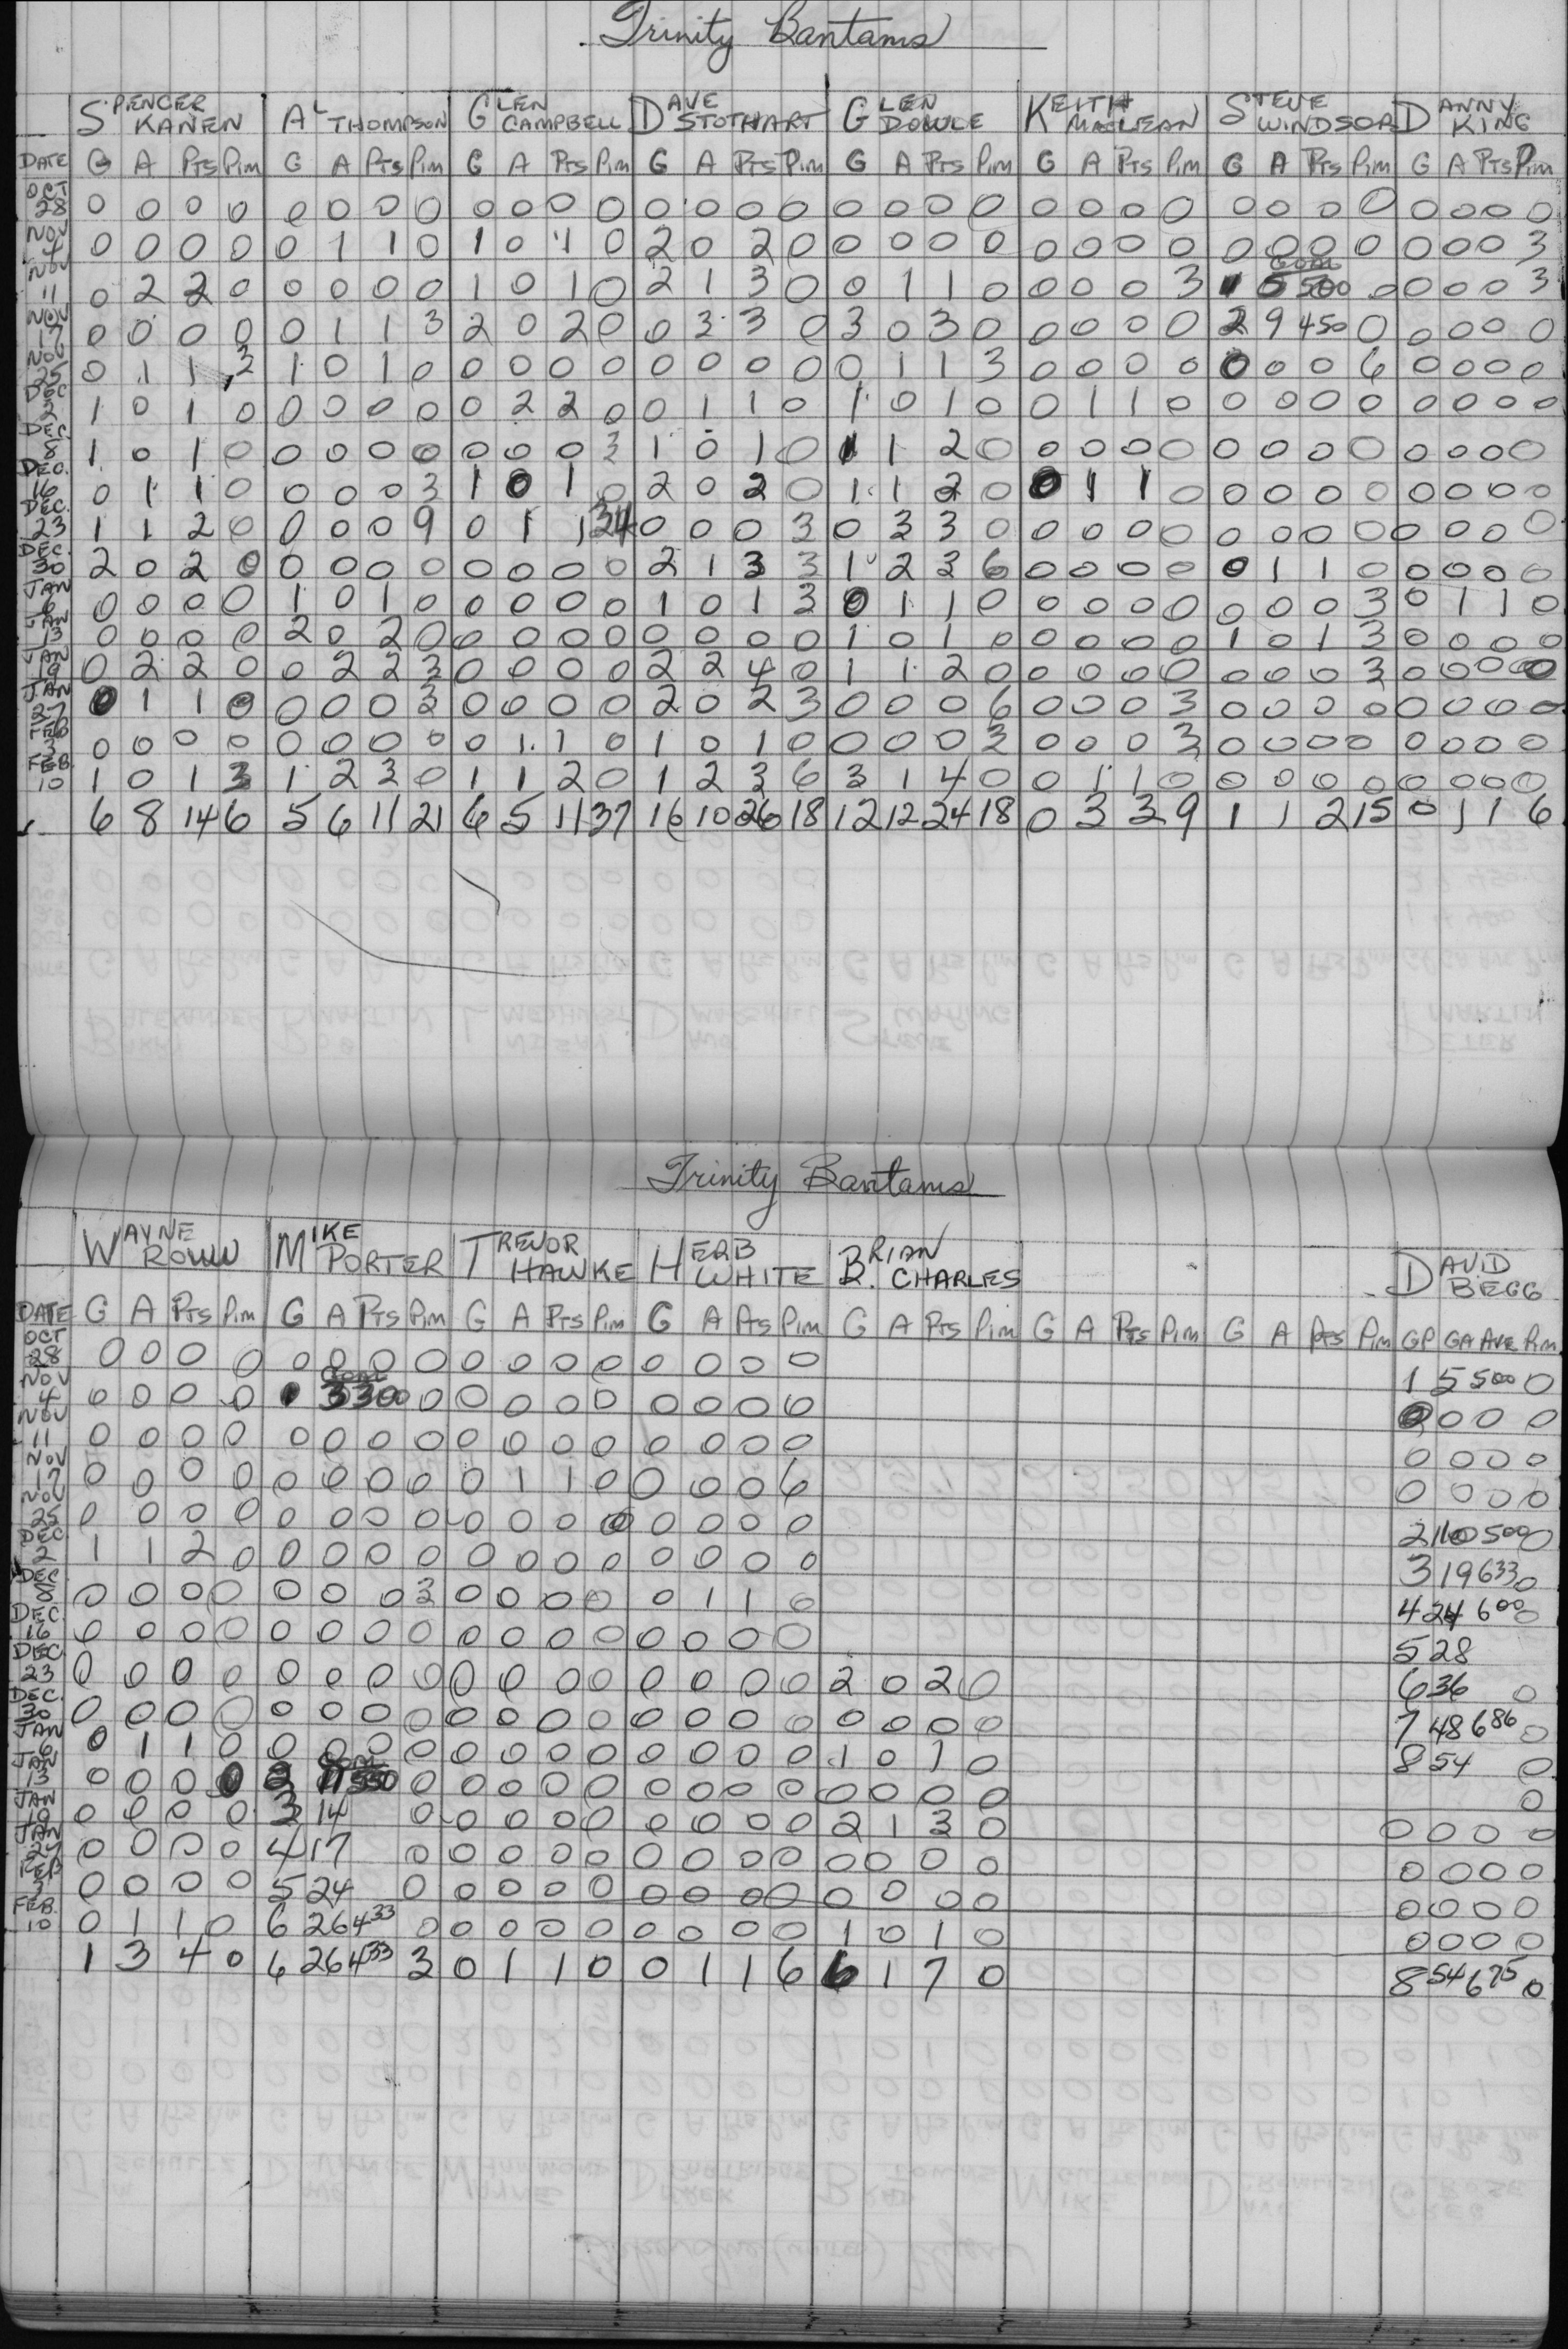 Trinity Bantams
SPENCER KANEN AL THOMPSON GLEN CAMPBELL DAVE STOTHART GLEN DOWLE KEITH MACLEAN STEVE WINDSOR DANNY KING
DATE G A PTS Pim G A PTS Pim G A PTS Pim G A PTS Pim G A PTS Pim G A PTS Pim G A PTS Pim G A PTS Pim
OCT 28 0 0 0 0 0 0 0 0 0 0 0 0 0 0 0 0 0 0 0 0 0 0 0 0 0 0 0 0 0 0 0 0
NOV 4 0 0 0 0 0 1 1 0 1 0 1 0 2 0 2 0 0 0 0 0 0 0 0 0 0 0 0 0 0 0 0 3
NOV 11 0 2 2 0 0 0 0 0 1 0 1 0 2 1 3 0 0 1 1 0 0 0 0 3 1 GOAL 5 500 0 0 0 0 3
NOV 17 0 0 0 0 0 1 1 3 2 0 2 0 0 3 3 0 3 0 3 0 0 0 0 0 2 9 450 0 0 0 0 0
NOV 25 0 1 1 3 1 0 1 0 0 0 0 0 0 0 0 0 0 1 1 3 0 0 0 0 0 0 0 6 0 0 0 0
DEC 2 1 0 1 0 0 0 0 0 0 2 2 0 0 1 1 0 1 0 1 0 0 1 1 0 0 0 0 0 0 0 0 0
DEC. 8 1 0 1 0 0 0 0 0 0 0 0 3 1 0 1 0 1 1 2 0 0 0 0 0 0 0 0 0 0 0 0 0
DEC. 16 0 1 1 0 0 0 0 3 1 0 1 0 2 0 2 0 1 1 2 0 0 1 1 0 0 0 0 0 0 0 0 0
DEC. 23 1 1 2 0 0 0 0 9 0 1 1 34 0 0 0 3 0 3 3 0 0 0 0 0 0 0 0 0 0 0 0 0
DEC. 30 2 0 2 0 0 0 0 0 0 0 0 0 2 1 3 3 1 2 3 6 0 0 0 0 0 1 1 0 0 0 0 0
JAN 6 0 0 0 0 1 0 1 0 0 0 0 0 1 0 1 3 0 1 1 0 0 0 0 0 0 0 0 3 0 1 1 0
JAN 13 0 0 0 0 2 0 2 0 0 0 0 0 0 0 0 0 1 0 1 0 0 0 0 0 1 0 1 3 0 0 0 0
JAN 19 0 2 2 0 0 2 2 3 0 0 0 0 2 2 4 0 1 1 2 0 0 0 0 0 0 0 0 3 0 0 0 0
JAN 27 0 1 1 0 0 0 0 3 0 0 0 0 2 0 2 3 0 0 0 6 0 0 0 3 0 0 0 0 0 0 0 0
FEB 3 0 0 0 0 0 0 0 0 0 1 1 0 1 0 1 0 0 0 0 3 0 0 0 3 0 0 0 0 0 0 0 0
FEB. 10 1 0 1 3 1 2 3 0 1 1 2 0 1 2 3 6 3 1 4 0 0 1 1 0 0 0 0 0 0 0 0 0
6 8 14 6 5 6 11 21 6 5 11 37 16 10 26 18 12 12 24 18 0 3 3 9 1 1 2 15 0 1 1 6
Trinity Bantams
WAYNE ROWW MIKE PORTER TREVOR HAWKE HERB WHITE BRIAN CHARLES DAVID BEGG
DATE G A PTS Pim G A PTS Pim G A PTS Pim G A PTS Pim G A PTS Pim G A PTS Pim G A PTS Pim GP GA AVE Pim
OCT 28 0 0 0 0 0 0 0 0 0 0 0 0 0 0 0 0 1 5 500 0
NOV 4 0 0 0 0 1 GOAL 3 300 0 0 0 0 0 0 0 0 0 0 0 0 0
NOV 11 0 0 0 0 0 0 0 0 0 0 0 0 0 0 0 0 0 0 0 0
NOV 17 0 0 0 0 0 0 0 0 0 1 1 0 0 0 0 6 0 0 0 0
NOV 25 0 0 0 0 0 0 0 0 0 0 0 0 0 0 0 0 2 10 500 0
DEC 2 1 1 2 0 0 0 0 0 0 0 0 0 0 0 0 0 3 19 633 0
DEC 8 0 0 0 0 0 0 0 3 0 0 0 0 0 1 1 0 4 24 600 0
DEC. 16 0 0 0 0 0 0 0 0 0 0 0 0 0 0 0 0 5 28
DEC. 23 0 0 0 0 0 0 0 0 0 0 0 0 0 0 0 0 2 0 2 0 6 36 0
DEC. 30 0 0 0 0 0 0 0 0 0 0 0 0 0 0 0 0 0 0 0 0 7 48 686 0
JAN 6 0 1 1 0 0 0 0 0 0 0 0 0 0 0 0 0 1 0 1 0 8 54 0
JAN 13 0 0 0 0 2 GOAL 11 550 0 0 0 0 0 0 0 0 0 0 0 0 0 0
JAN 19 0 0 0 0 3 14 0 0 0 0 0 0 0 0 0 2 1 3 0 0 0 0 0
JAN 27 0 0 0 0 4 17 0 0 0 0 0 0 0 0 0 0 0 0 0 0 0 0 0
FEB 3 0 0 0 0 5 24 0 0 0 0 0 0 0 0 0 0 0 0 0 0 0 0 0
FEB. 10 0 1 1 0 6 26 433 0 0 0 0 0 0 0 0 0 1 0 1 0 0 0 0 0
1 3 4 0 6 26 433 3 0 1 1 0 0 1 1 6 6 1 7 0 8 54 675 0